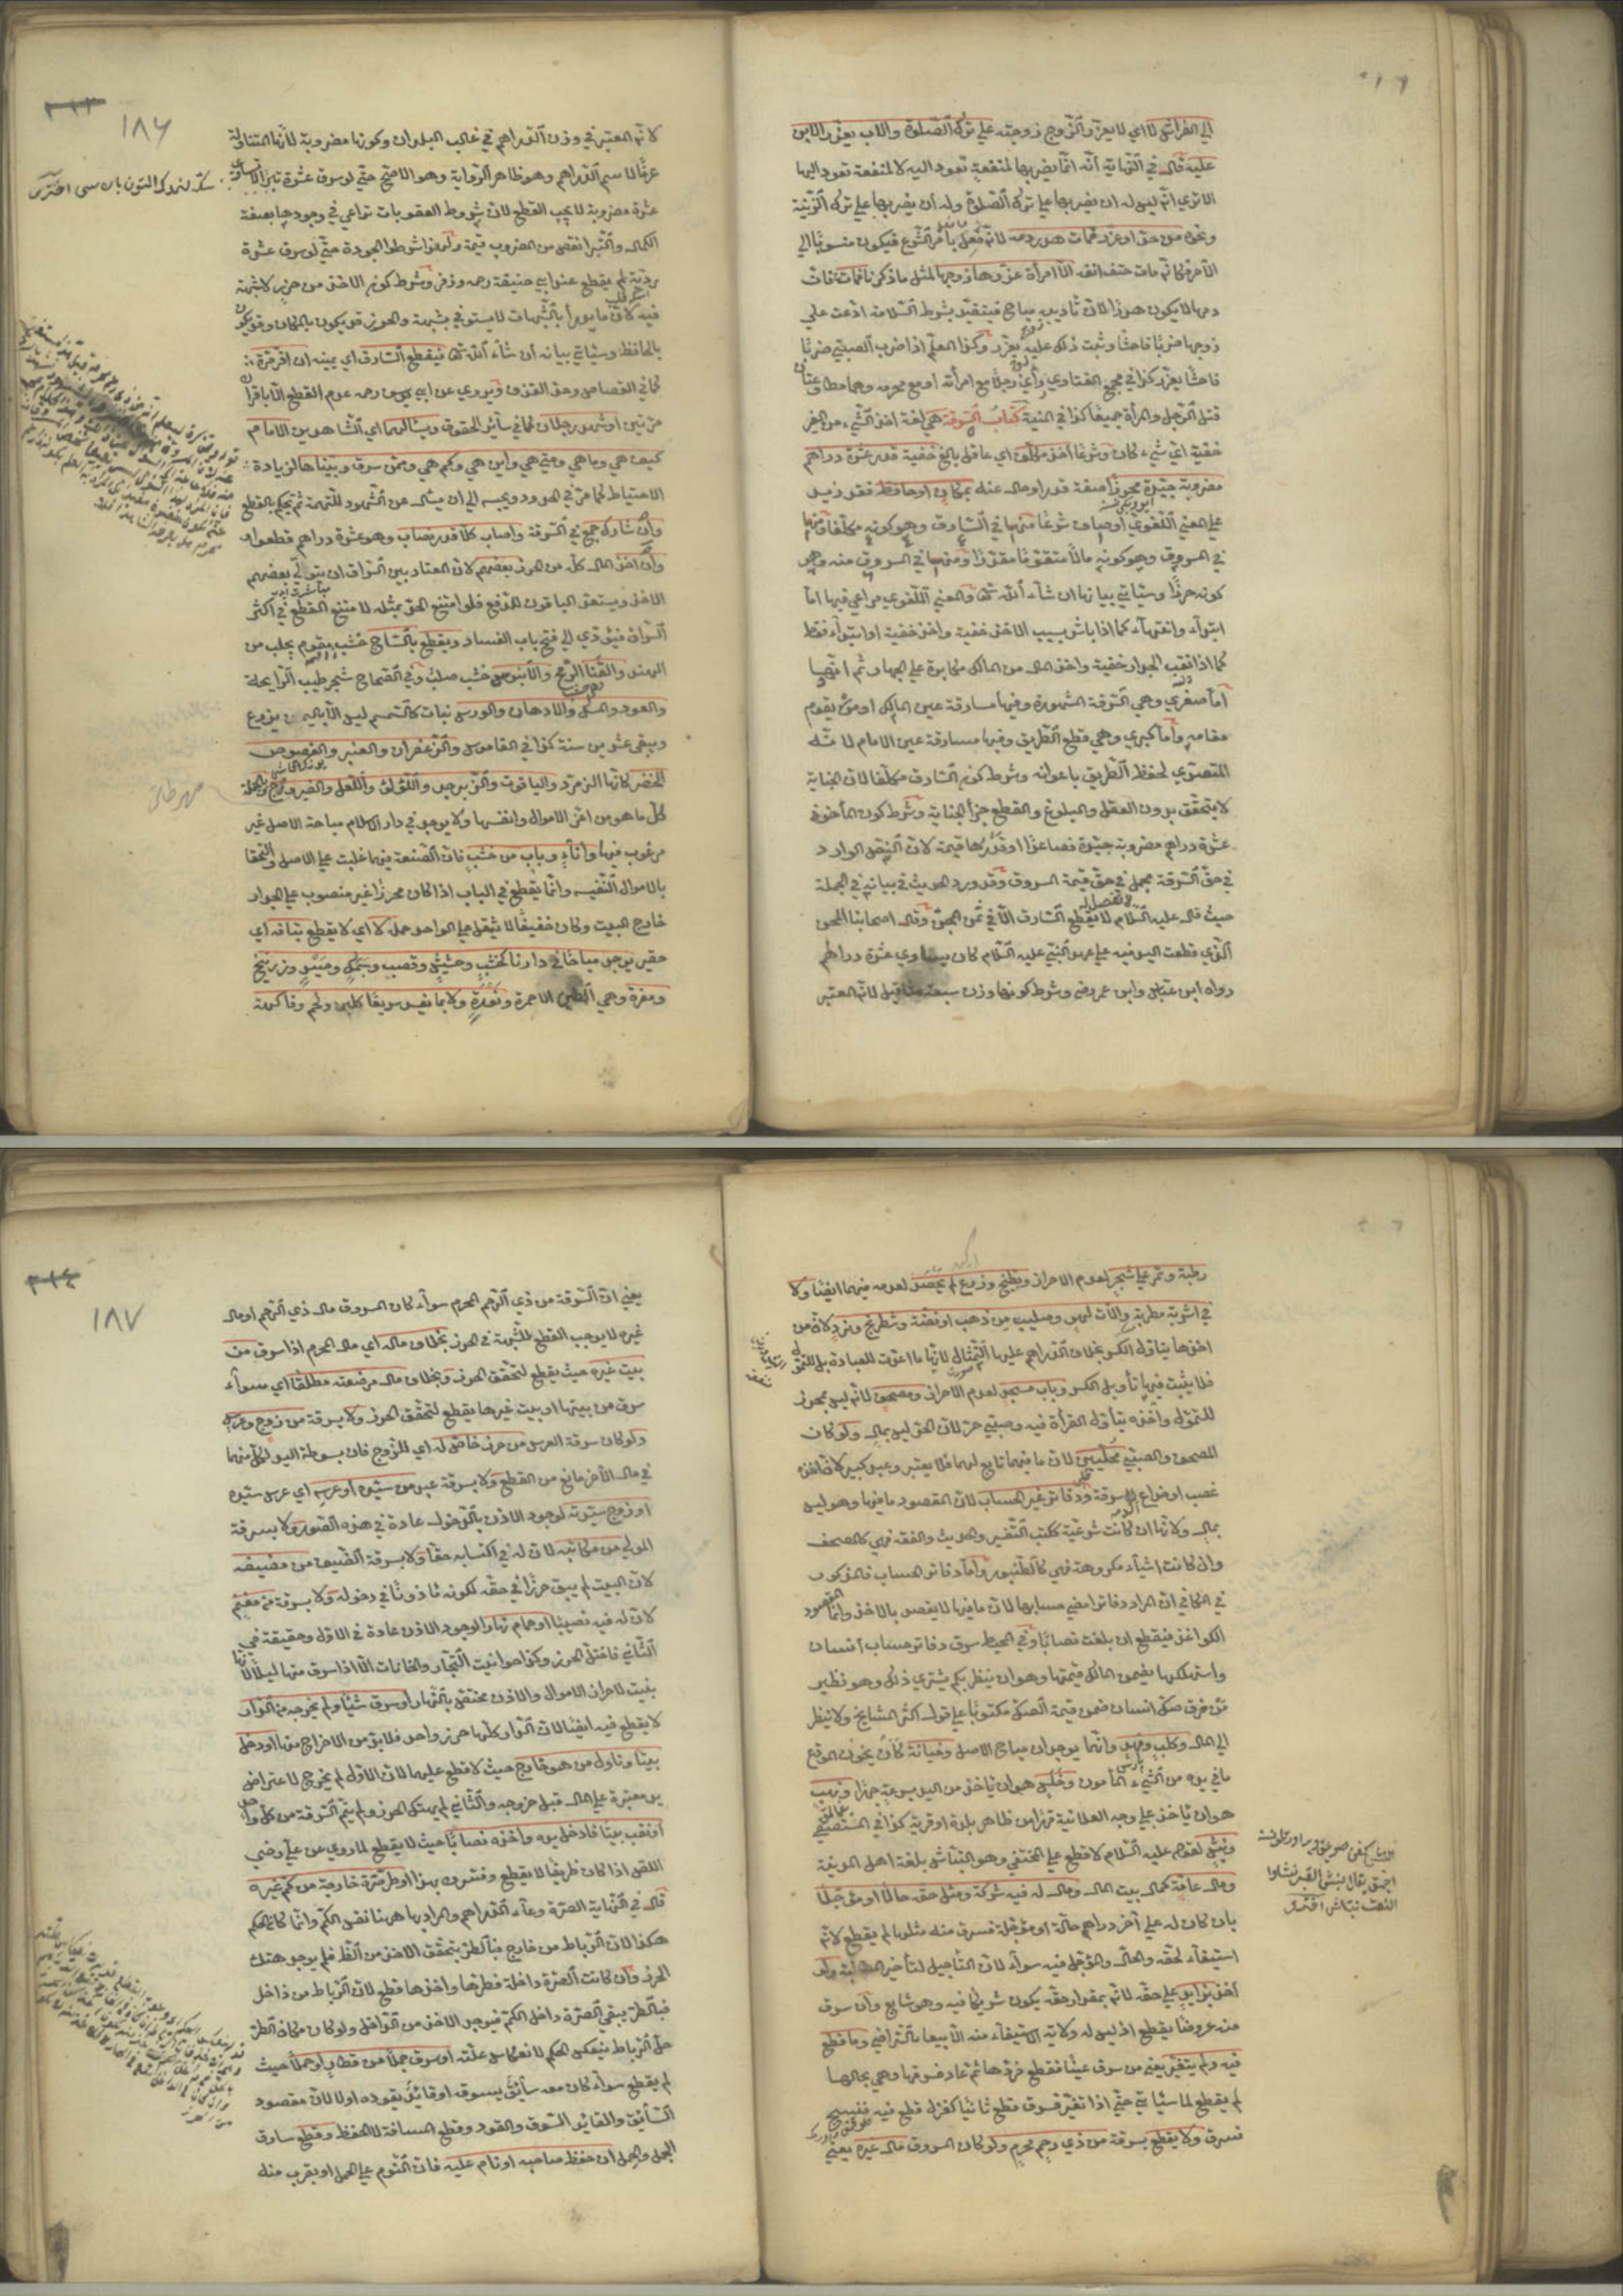 إلى الفراش لا اي لا يعزر والزوج زوجته على ترك الصلوة والاب يعزر الابن
عليه قال في النهاية أنه انما يضربها لمنفعة تعود اليه لا لمنفعة تعود اليها
الا ترى انه ليس له ان يضربها على ترك الصلوة وله أن يضربها على ترك الزينة
ونحوه من حد او عزر فمات هدر دمه لانه فعل بامر الشرع فيكون منسوبا الى
الآمر فكانه مات حتف انفه الا امرأة عزرها زوجها لمثل ما ذكرنا فماتت فان
دمها لا يكون هدرا لان تأديبه مباح فيتقيد بشرط السلامة ادعت على
زوجها ضربا فاحشا وثبت ذلك عليه يعزر وكذا المعلم اذا ضرب الصبي ضربا
فاحشا يعزر كذا في مجمع الفتاوى رأى رجلا مع امرأته او مع محرمه وهما مطاوعتان
قتل الرجل والمرأة جميعا كذا في المنية كتاب السرقة هي لغة اخذ الشيء من الغير
خفية اي شيء كان وشرعا أخذ مكلف اي عاقل بالغ خفية قدر عشرة دراهم
مضروبة جيدة محرزا صفة قدر او حال عنه بمكان او حافظ فقد زيد
على المعنى اللغوي اوصاف شرعا منها في السارق وهو كونه مكلفا ومنها
في المسروق وهو كونه مالا متقوما مقدرا ومنها في المسروق منه وهو
كونه حرزا وسيأتي بيانها ان شاء الله تعالى والمعنى اللغوي مراعى فيها اما
ابتداء وانتهاء كما اذا باشر سبب الاخذ خفية واخذ خفية او ابتداء فقط
كما اذا نقب الجدار خفية واخذ المال من المالك مكابرة على الجهار ثم انها
أما صغرى وهي السرقة المشهورة وفيها مسارقة عين المالك او من يقوم
مقامه وأما كبرى وهي قطع الطريق وفيها مسارقة عين الامام لانه
المتصدي لحفظ الطريق باعوانه وشرط كون السارق مكلفا لان الجناية
لا يتحقق بدون العقل والبلوغ والقطع جزاء الجناية وشرط كون المأخوذ
عشرة دراهم مضروبة جيدة فصاعدا او قدرها قيمة لان النص الوارد
في حق السرقة مجمل في حق قيمة المسروق وقد ورد الحديث في بيانه في الجملة
حيث قال عليه السلام لا يقطع السارق الا في ثمن المجن وقال اصحابنا المجن
الذي قطعت اليد فيه على عهد النبي عليه السلام كان يساوي عشرة دراهم
رواه ابن عباس وابن عمر وشرط كونها وزن سبعة مثاقيل لانه المعتبر
١٨٦
لانه المعتبر في وزن الدراهم في غالب البلدان وكونها مضروبة لانها المتناولة
عرفا لاسم الدراهم وهو ظاهر الرواية وهو الاصح حتى لو سرق عشرة تبرا لا تساوي
عشرة مضروبة لا يجب القطع لان شروط العقوبات تراعى في وجودها بصفة
الكمال والتبر انقص من المضروب قيمة ولهذا شرطوا الجودة حتى لو سرق عشرة
ردية لم يقطع عند ابي حنيفة رحمه وزفر وشرط كون الاخذ من حرز لا شبهة
فيه لان ما يدرأ بالشبهات لا يستوفى بشبهة والحرز قد يكون بالمكان وقد يكون
بالحافظ وسيأتي بيانه ان شاء الله تعالى فيقطع السارق اي يمينه ان اقر مرة
كما في القصاص وحد القذف ويروى عن ابي يوسف رحمه عدم القطع الا باقرار
مرتين او شهد رجلان كما في سائر الحقوق ويسألهما اي الشاهدين الامام
كيف هي وما هي ومتى هي واين هي وكم هي وممن سرق وبيناها لزيادة
الاحتياط كما مر في الحدود ويحبسه الى ان يسأل عن الشهود للتهمة ثم يحكم بالقطع
وان شارك جمع في السرقة واصاب كلا قدر نصاب وهو عشرة دراهم قطعوا
وان اخذ المال كله من الحرز بعضهم لان المعتاد بين السراق ان يتولى بعضهم
الاخذ ويستعد الباقون للدفع فلو امتنع الحد بمثله لامتنع القطع في اكثر
السراق فيؤدي الى فتح باب الفساد ويقطع بالساج خشب مقوم يجلب من
الهند والقنا الرمح والآبنوس خشب صلب وفي الصحاح شجر طيب الرائحة
والعود والمسك والادهان والورس نبات كالسمسم ليس الا باليمن يزرع
ويبقى عشرين سنة كذا في القاموس والزعفران والعنبر والفصوص
الخضر كانها الزمرد والياقوت والزبرجد واللؤلؤ واللعل والفيروزج وبالجملة
كل ما هو من اعز الاموال وانفسها ولا يوجد في دار الاسلام مباحة الاصل غير
مرغوب فيها واناء وباب من خشب فان الصنعة فيهما غلبت على الاصل والتحقا
بالاموال النفيسة وانما يقطع في الباب اذا كان محرزا غير منصوب على الجدار
خارج البيت وكان خفيفا لا يثقل على الواحد حمله لا اي لا يقطع بتافه اي
حقير يوجد مباحا في دارنا كخشب وحشيش وقصب وسمك وصيد وزرنيخ
ومغرة وهي الطين الاحمر ونورة ولا بما يفسد سريعا كلبن ولحم وفاكهة
رطبة وثمر على شجر لعدم الاحراز وبطيخ وزرع لم يحصد لعدمه فيهما ايضا ولا
في اشربة مطربة وآلات لهو وصليب من ذهب او فضة وشطرنج ونرد لان من
اخذها يتأول الكسر بخلاف الدراهم عليها التمثال لانها ما اعدت للعبادة بل للتمول
فلا يثبت فيها تأويل الكسر وباب مسجد لعدم الاحراز ومصحف لانه ليس بمحرز
للتمول واخذه يتأول القراءة فيه وصبي حر لان الحر ليس بمال ولو كان
المصحف والصبي محليين لان ما فيهما تابع لهما فلا يعتبر وعبد كبير لان اخذه
غصب او خداع لا سرقة ودفاتر غير الحساب لان المقصود ما فيها وهو ليس
بمال ولانها ان كانت شرعية ككتب التفسير والحديث والفقه فهي كالمصحف
وان كانت اشياء مكروهة فهي كالطنبور واما دفاتر الحساب فالمذكور
في الكافي ان المراد دفاتر امضي حسابها لان ما فيها لا يقصد بالاخذ وانما المقصود
الكواغذ فيقطع ان بلغت نصابا وفي المحيط سرق دفاتر حساب انسان
واستهلكها يضمن المالك قيمتها وهو ان ينظر بكم يشتري ذلك وهو نظير
من خرق صك انسان ضمن قيمة الصك مكتوبا على قول اكثر المشايخ ولا ينظر
الى المال وكلب وفهد وانما يوجدان مباح الاصل وخيانة كان يخون المودع
ما في يده من الشيء المأمون وخلس هو ان ياخذ من اليد بسرعة جهرا ونهب
هو ان ياخذ على وجه العلانية قهرا من ظاهر بلدة او قرية كذا في المستصفى
ونبش لقوله عليه السلام لا قطع على المختفي وهو النباش بلغة اهل المدينة
ومال عامة كمال بيت المال ومال له فيه شركة ومثل حقه حالا او مؤجلا
بان كان له على آخر دراهم حالة او مؤجلة فسرق منه مثلها لم يقطع لانه
استيفاء لحقه والحال والمؤجل فيه سواء لان التأجيل لتأخير المطالبة ولو
اخذ زوائد على حقه لانه بمقدار حقه يكون شريكا فيه وهو شايع وان سرق
منه عروضا يقطع اذ ليس له ولاية الاستيفاء منه الا بيعا بالتراضي وما قطع
فيه ولم يتغير يعني من سرق عينا فقطع فردها ثم عاد فسرقها وهي بحالها
لم يقطع لما سيأتي حتى اذا تغير فسرق قطع ثانيا كغزل قطع فيه فنسج
فسرق ولا يقطع بسرقة من ذي رحم محرم ولو كان المسروق مال غيره يعني
١٨٧
يعني ان السرقة من ذي الرحم المحرم سواء كان المسروق مال ذي الرحم او مال
غيره لا يوجب القطع للشبهة في الحرز بخلاف ماله اي مال المحرم اذا سرق من
بيت غيره حيث يقطع لتحقق الحرز وبخلاف مال مرضعته مطلقا اي سواء
سرق من بيتها او بيت غيرها يقطع لتحقق الحرز ولا بسرقة من زوج وعرس
ولو كان سرقة العرس من حرز خاص له اي للزوج فان بسوطة اليد لكل منهما
في مال الآخر مانع من القطع ولا بسرقة عبد من سيده او عرسه اي عرس سيده
او زوج سيدته لوجود الاذن بالدخول عادة في هذه الصور ولا بسرقة
المولى من مكاتبه لان له في اكتسابه حقا ولا بسرقة الضيف من مضيفه
لان البيت لم يبق حرزا في حقه لكونه مأذونا في دخوله ولا بسرقة من مغنم
لان له فيه نصيبا او حمام نهارا لوجود الاذن عادة في الاول وحقيقة في
الثاني فاختل الحرز وكذا حوانيت التجار والخانات الا اذا سرق منها ليلا لانها
بنيت لاحراز الاموال والاذن مختص بالنهار او سرق شيئا ولم يخرجه من الدار
لا يقطع فيه ايضا لان الدار كلها حرز واحد فلا بد من الاخراج منها او دخل
بيتا وناول من هو خارج حيث لا قطع عليهما لان الاول لم يخرج لاعتراض
يد معتبرة على المال قبل خروجه والثاني لم يهتك الحرز ولم يتم السرقة من كل واحد
او نقب بيتا فادخل يده واخذ نصابا حيث لا يقطع لما روي عن علي رضي
اللص اذا كان ظريفا لا يقطع وفسره بهذا او طر صرة خارجة من كم غيره
قال في النهاية الصرة وعاء الدراهم والمراد بها ههنا نفس الكم وانما كان الحكم
هكذا لان الرباط من خارج فبالطر يتحقق الاخذ من الظاهر فلم يوجد هتك
الحرز وان كانت الصرة داخلة فطرها واخذها قطع لان الرباط من داخل
فبالطر يبقى الصرة داخل الكم فيوجد الاخذ من الداخل ولو كان مكان الطر
حل الرباط ينعكس الحكم لانعكاس علته او سرق جملا من قطار او حملا حيث
لم يقطع سواء كان معه سائق يسوقه او قائد يقوده او لا لان مقصود
السائق والقائد السوق والقود وقطع المسافة لا الحفظ وقطع سارق
الجمل والحمل ان حفظه صاحبه او نام عليه فان النوم على الحمل او بقرب منه